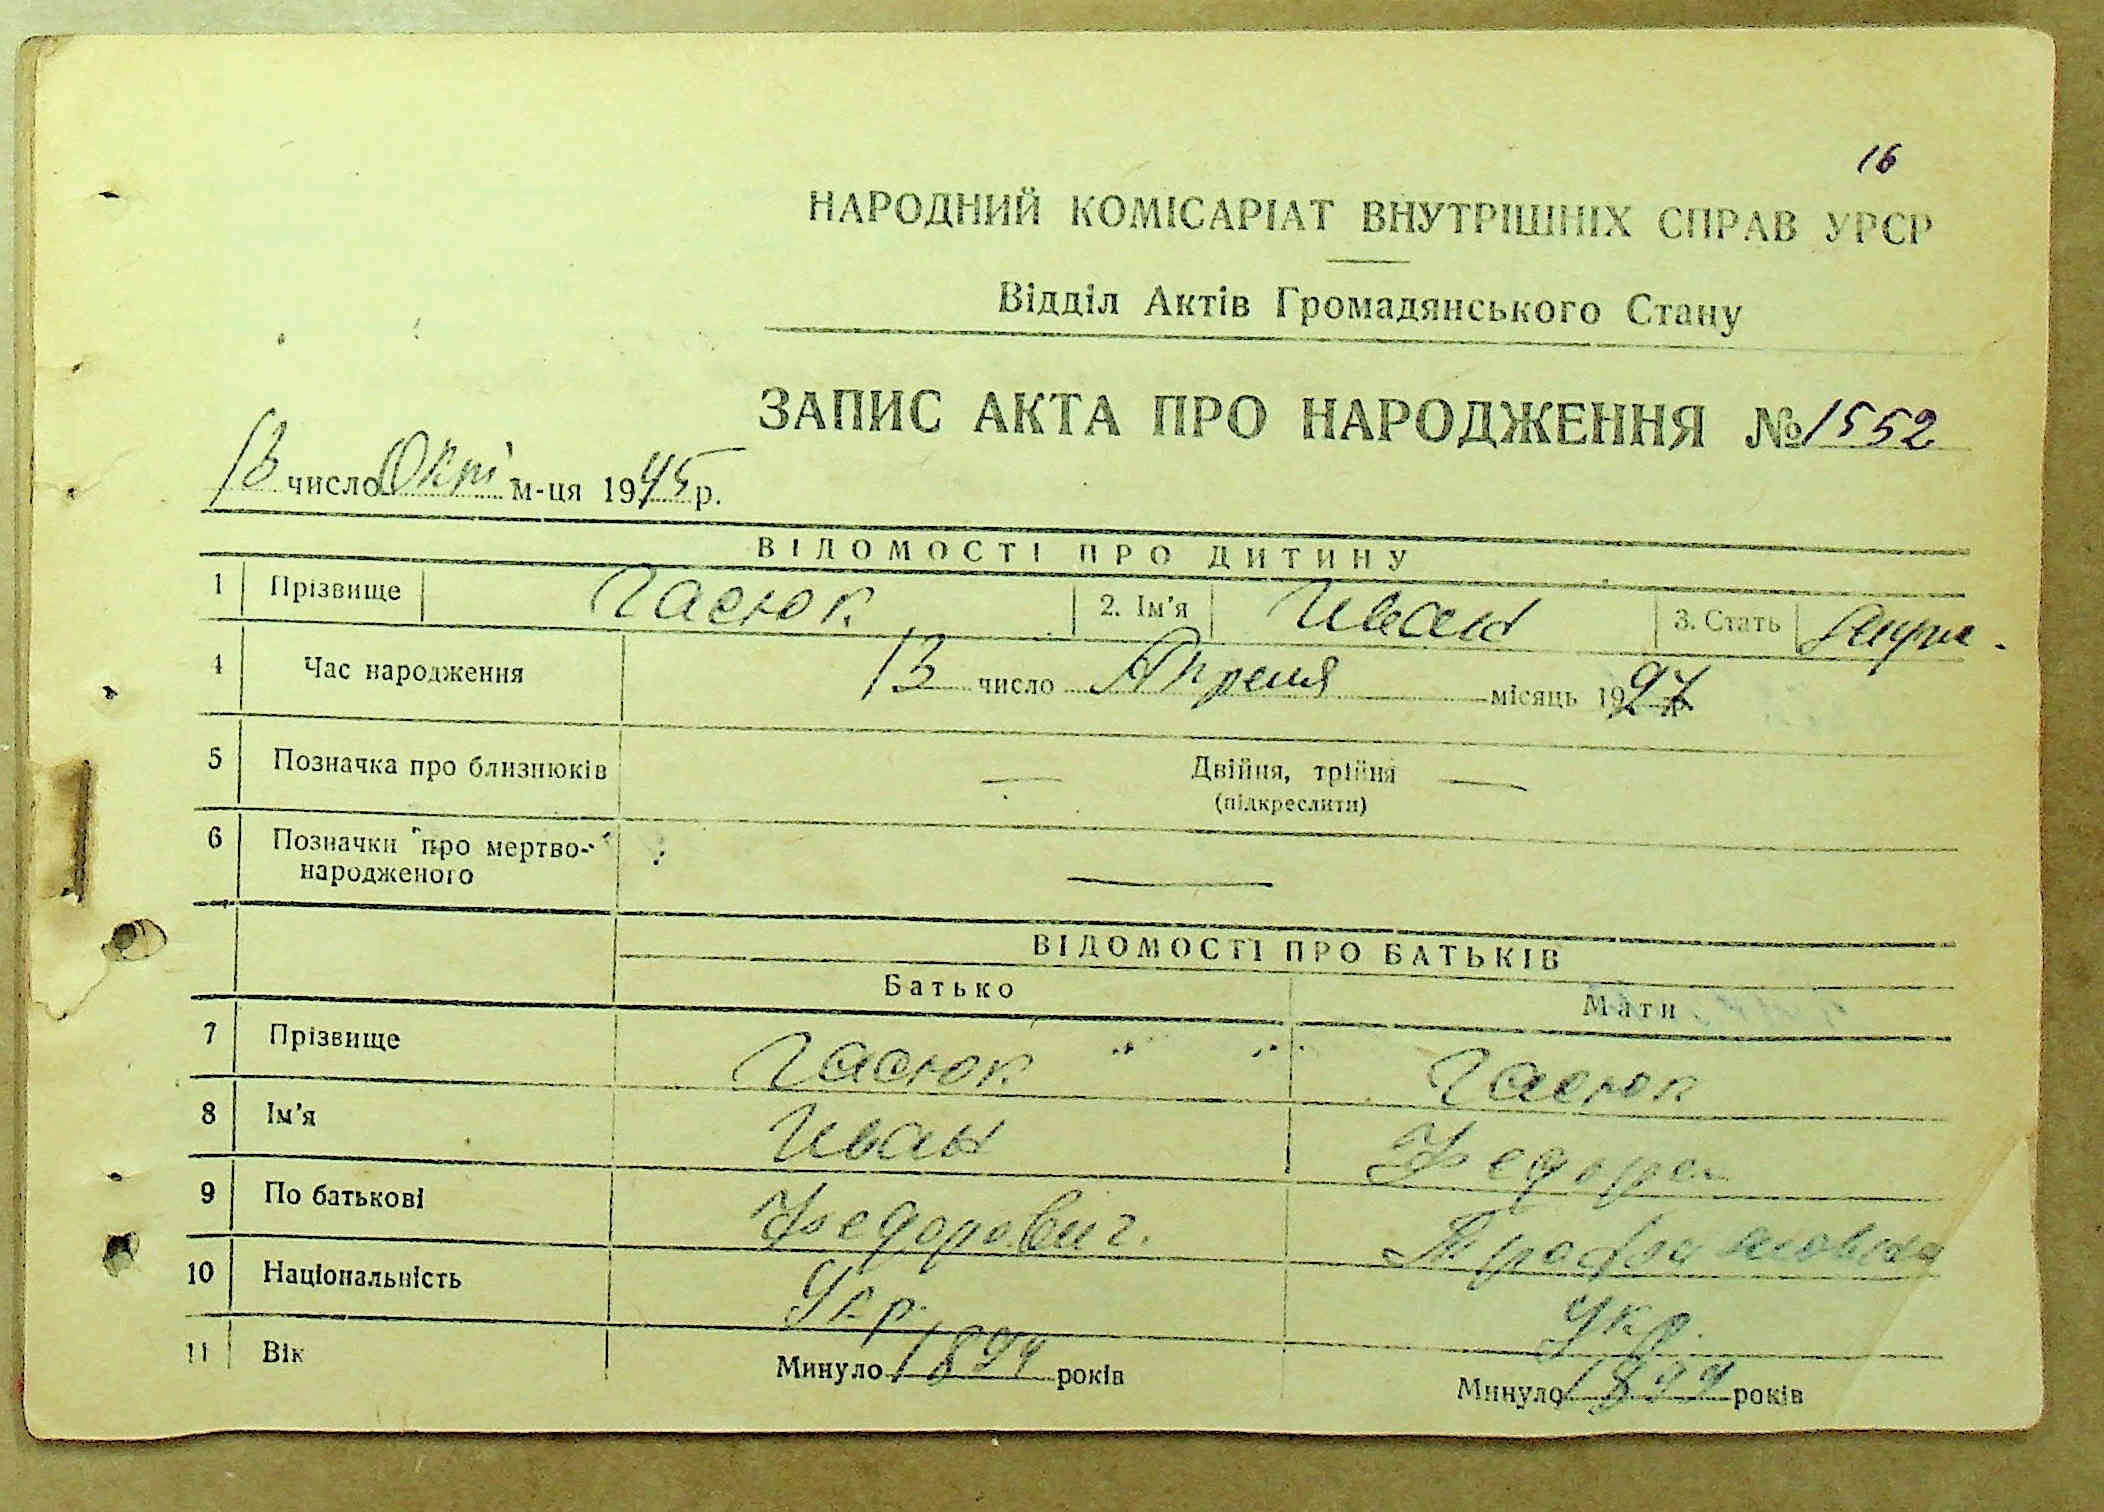 16
НАРОДНИЙ КОМІСАРІАТ ВНУТРІШНІХ СПРАВ УРСР
Відділ Актів Громадянського Стану
ЗАПИС АКТА ПРО НАРОДЖЕННЯ № 1552
13 число Окт м-ця 1945 р.
ВІДОМОСТІ ПРО ДИТИНУ
1 Прізвище Гасюк 2. Ім'я Иван 3. Стать
4 Час народження 13 число Апреля місяць 1927 р.
5 Позначка про близнюків — Двійня, трійня —
(підкреслити)
6 Позначки про мертво-
народженого —
ВІДОМОСТІ ПРО БАТЬКІВ
Батько Мати
7 Прізвище Гасюк Гасюк
8 Ім'я Иван Федора
9 По батькові Федорович.
10 Національність Укр. Укр.
11 Вік Минуло 1894 років Минуло 1899 років